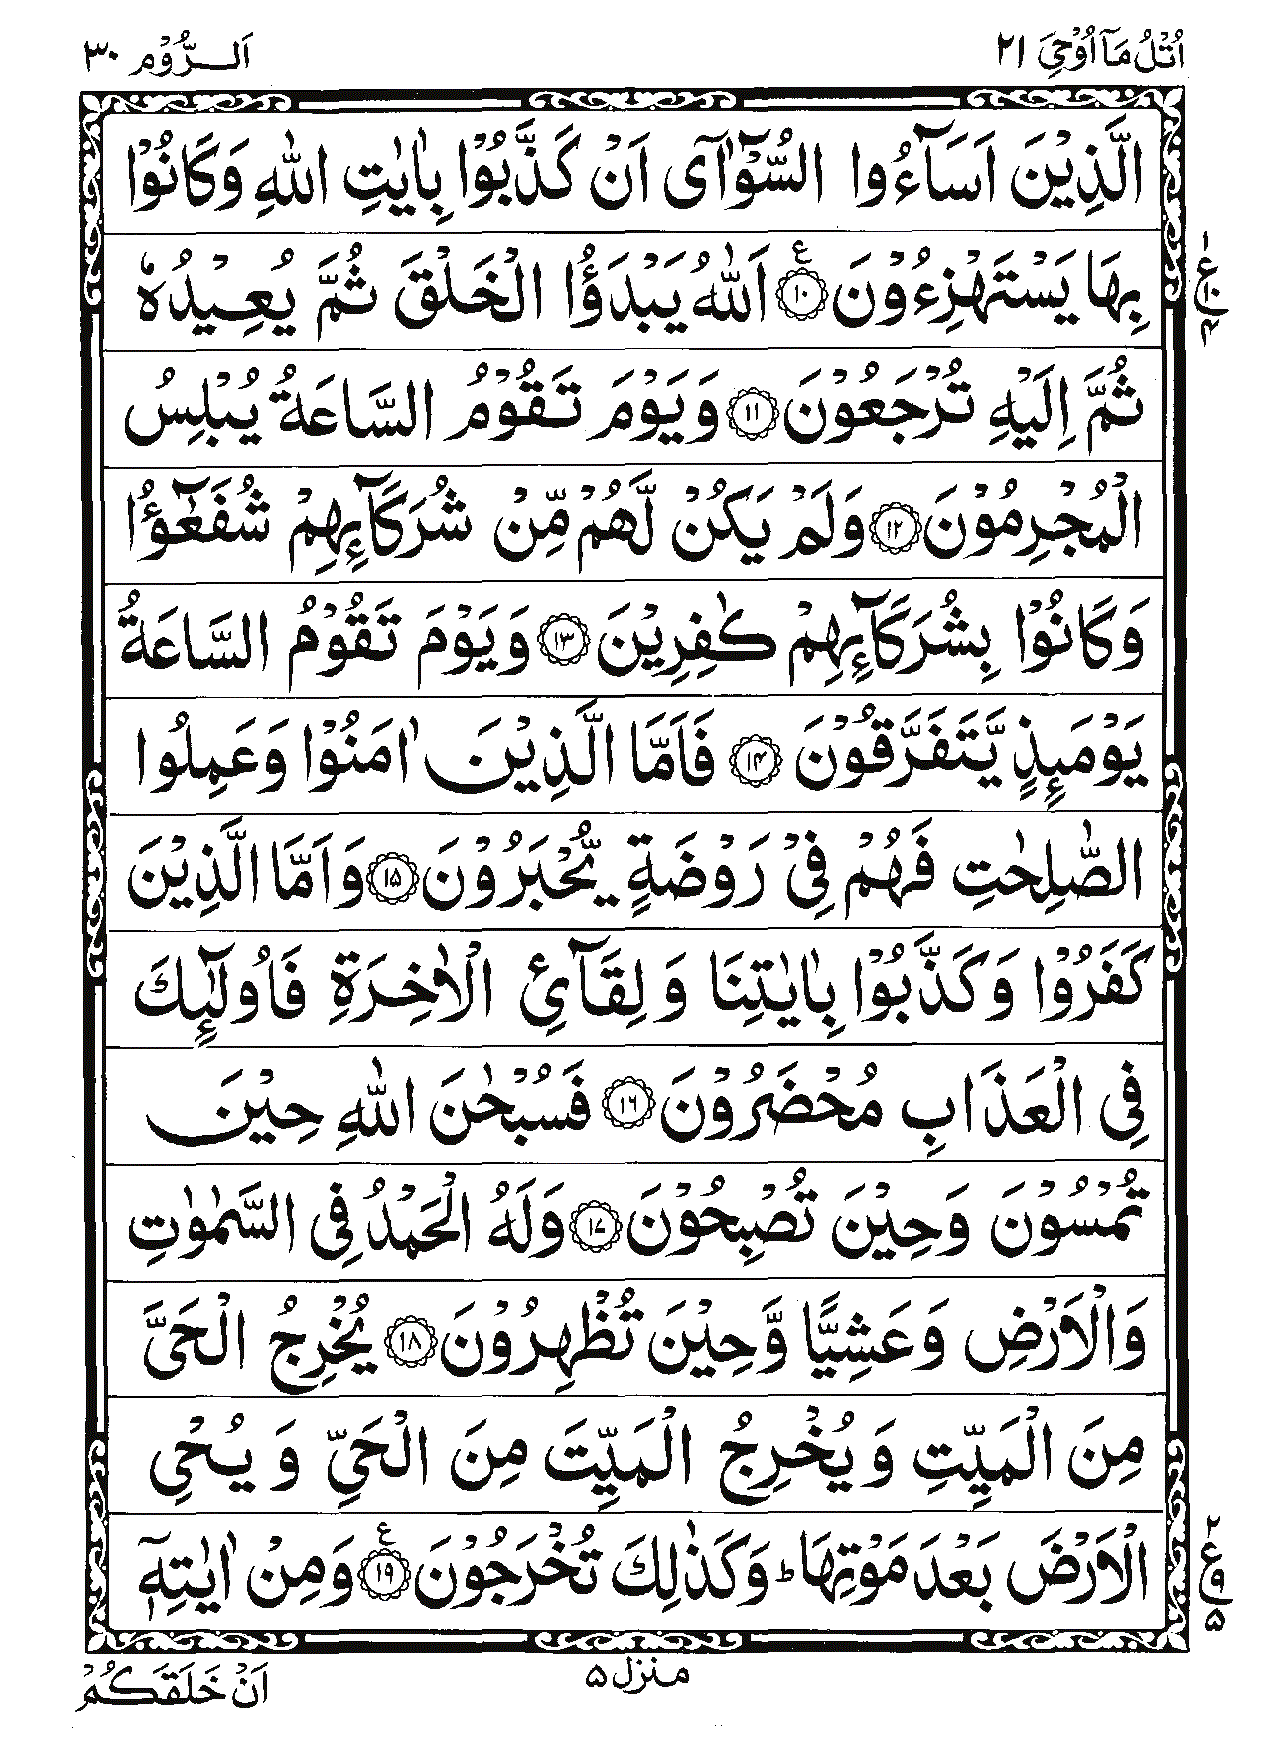 اُتْلُ مَآ اُوْحِيَ ٢١
اَلرُّوْم ٣٠
الَّذِيْنَ اَسَآءُوا السُّوْٓاٰۤى اَنْ كَذَّبُوْا بِاٰيٰتِ اللّٰهِ وَكَانُوْا
بِهَا يَسْتَهْزِءُوْنَ ۝١٠ ع اَللّٰهُ يَبْدَؤُا الْخَلْقَ ثُمَّ يُعِيْدُهٗ
ثُمَّ اِلَيْهِ تُرْجَعُوْنَ ۝١١ وَيَوْمَ تَقُوْمُ السَّاعَةُ يُبْلِسُ
الْمُجْرِمُوْنَ ۝١٢ وَلَمْ يَكُنْ لَّهُمْ مِّنْ شُرَكَآئِهِمْ شُفَعٰٓؤُا
وَكَانُوْا بِشُرَكَآئِهِمْ كٰفِرِيْنَ ۝١٣ وَيَوْمَ تَقُوْمُ السَّاعَةُ
يَوْمَئِذٍ يَّتَفَرَّقُوْنَ ۝١٤ فَاَمَّا الَّذِيْنَ اٰمَنُوْا وَعَمِلُوا
الصّٰلِحٰتِ فَهُمْ فِيْ رَوْضَةٍ يُّحْبَرُوْنَ ۝١٥ وَاَمَّا الَّذِيْنَ
كَفَرُوْا وَكَذَّبُوْا بِاٰيٰتِنَا وَلِقَآئِ الْاٰخِرَةِ فَاُولٰٓئِكَ
فِي الْعَذَابِ مُحْضَرُوْنَ ۝١٦ فَسُبْحٰنَ اللّٰهِ حِيْنَ
تُمْسُوْنَ وَحِيْنَ تُصْبِحُوْنَ ۝١٧ وَلَهُ الْحَمْدُ فِي السَّمٰوٰتِ
وَالْاَرْضِ وَعَشِيًّا وَّحِيْنَ تُظْهِرُوْنَ ۝١٨ يُخْرِجُ الْحَيَّ
مِنَ الْمَيِّتِ وَيُخْرِجُ الْمَيِّتَ مِنَ الْحَيِّ وَيُحْيِ
الْاَرْضَ بَعْدَ مَوْتِهَا ؕ وَكَذٰلِكَ تُخْرَجُوْنَ ۝١٩ ع وَمِنْ اٰيٰتِهٖٓ
١
ع١٠
٤
٢
ع٩
٥
منزل ٥
اَنْ خَلَقَكُمْ